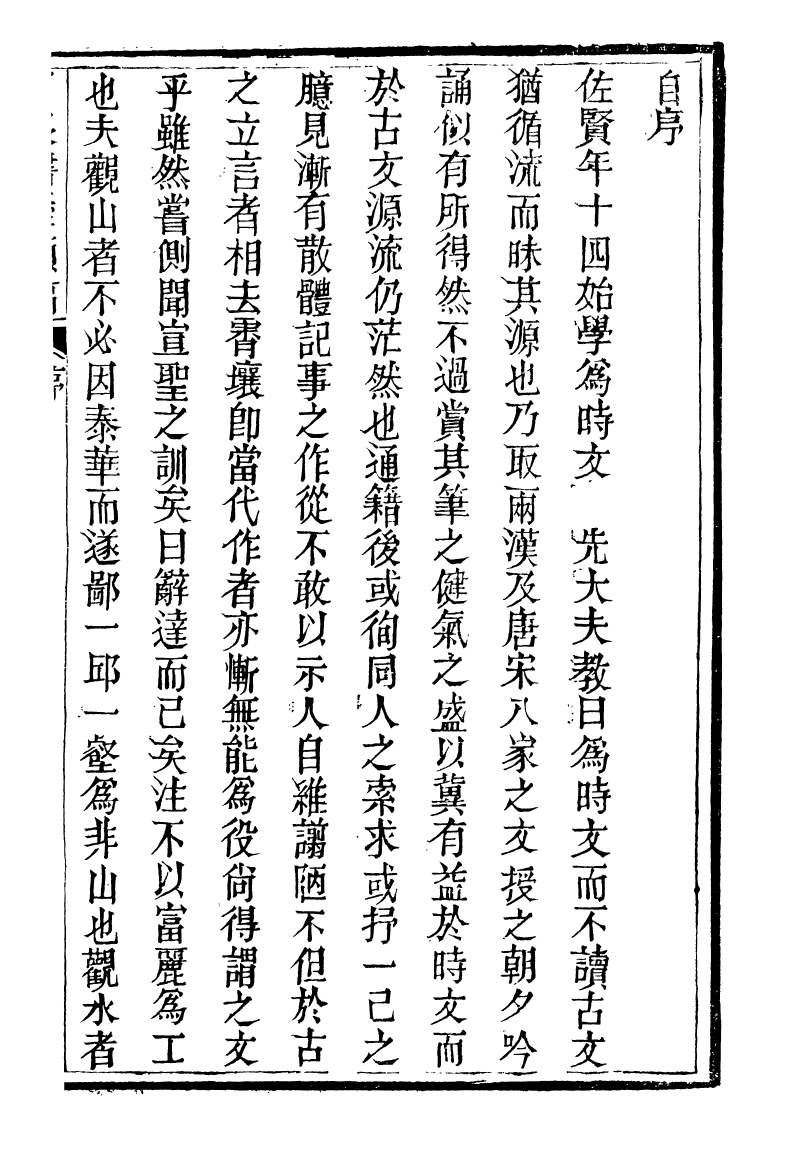 自序
佐賢年十四始學爲時文　先大夫教曰爲時文而不讀古文
猶循流而昧其源也乃取兩漢及唐宋八家之文授之朝夕吟
誦似有所得然不過賞其筆之健氣之盛以冀有益於時文而
於古文源流仍茫然也通籍後或徇同人之索求或抒一己之
臆見漸有散體記事之作從不敢以示人自維謭陋不但於古
之立言者相去霄壤卽當代作者亦慚無能爲役尙得謂之文
乎雖然嘗側聞宣聖之訓矣曰辭達而已矣注不以富麗爲工
也夫觀山者不必因泰華而遂鄙一邱一壑爲非山也觀水者
序